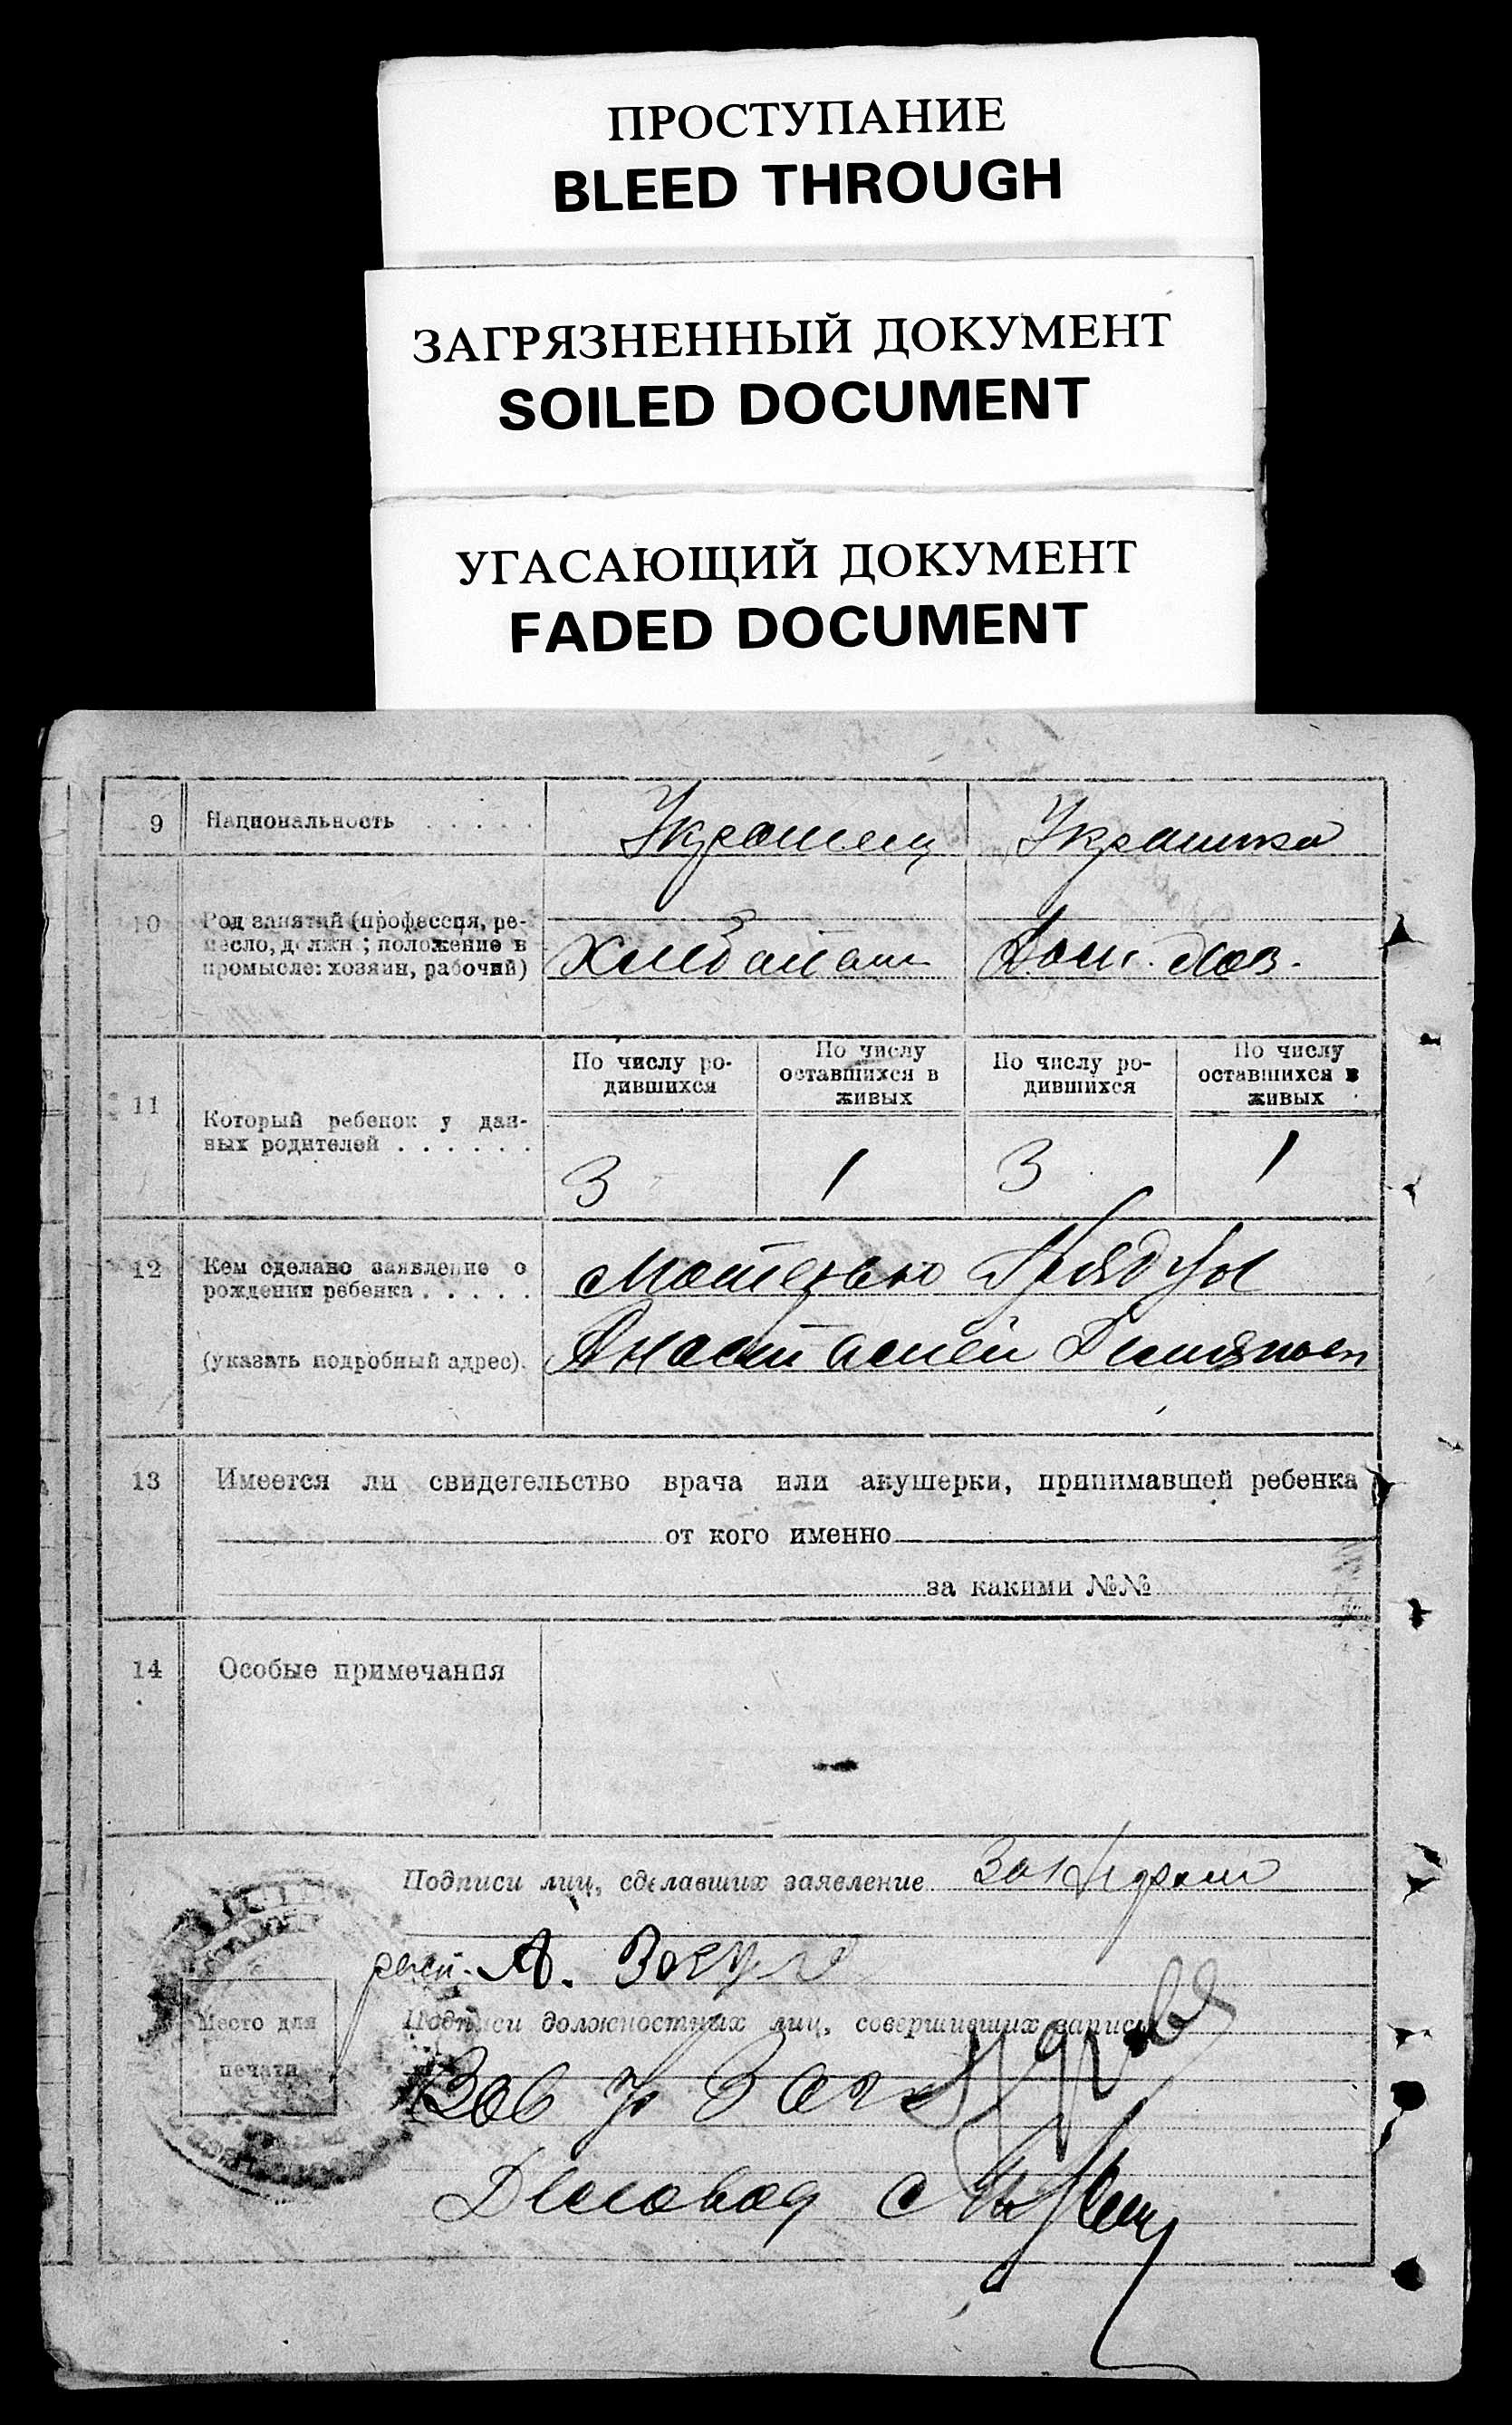 ПРОСТУПАНИЕ
BLEED THROUGH
ЗАГРЯЗНЕННЫЙ ДОКУМЕНТ
SOILED DOCUMENT
УГАСАЮЩИЙ ДОКУМЕНТ
FADED DOCUMENT
9 Национальность . . . . . Украинец Украинка
10 Род занятий (профессия, ре-
месло, должн; положение в
промысле: хозяин, рабочий)
Хлебопаш Дом. хоз.
11 Который ребенок у дан-
ных родителей . . . . . .
По числу ро-
дившихся
По числу
оставшихся в
живых
По числу ро-
дившихся
По числу
оставшихся в
живых
3 1 3 1
12 Кем сделано заявление о
рождении ребенка . . . . .
(указать подробный адрес).
Матерью
Анастасией
13 Имеется ли свидетельство врача или акушерки, принимавшей ребенка
от кого именно
за какими №№
14 Особые примечания
Подписи лиц, сделавших заявление
А.
Подписи должностных лиц, совершивших запись
Место для
печати
Зав
Діловод